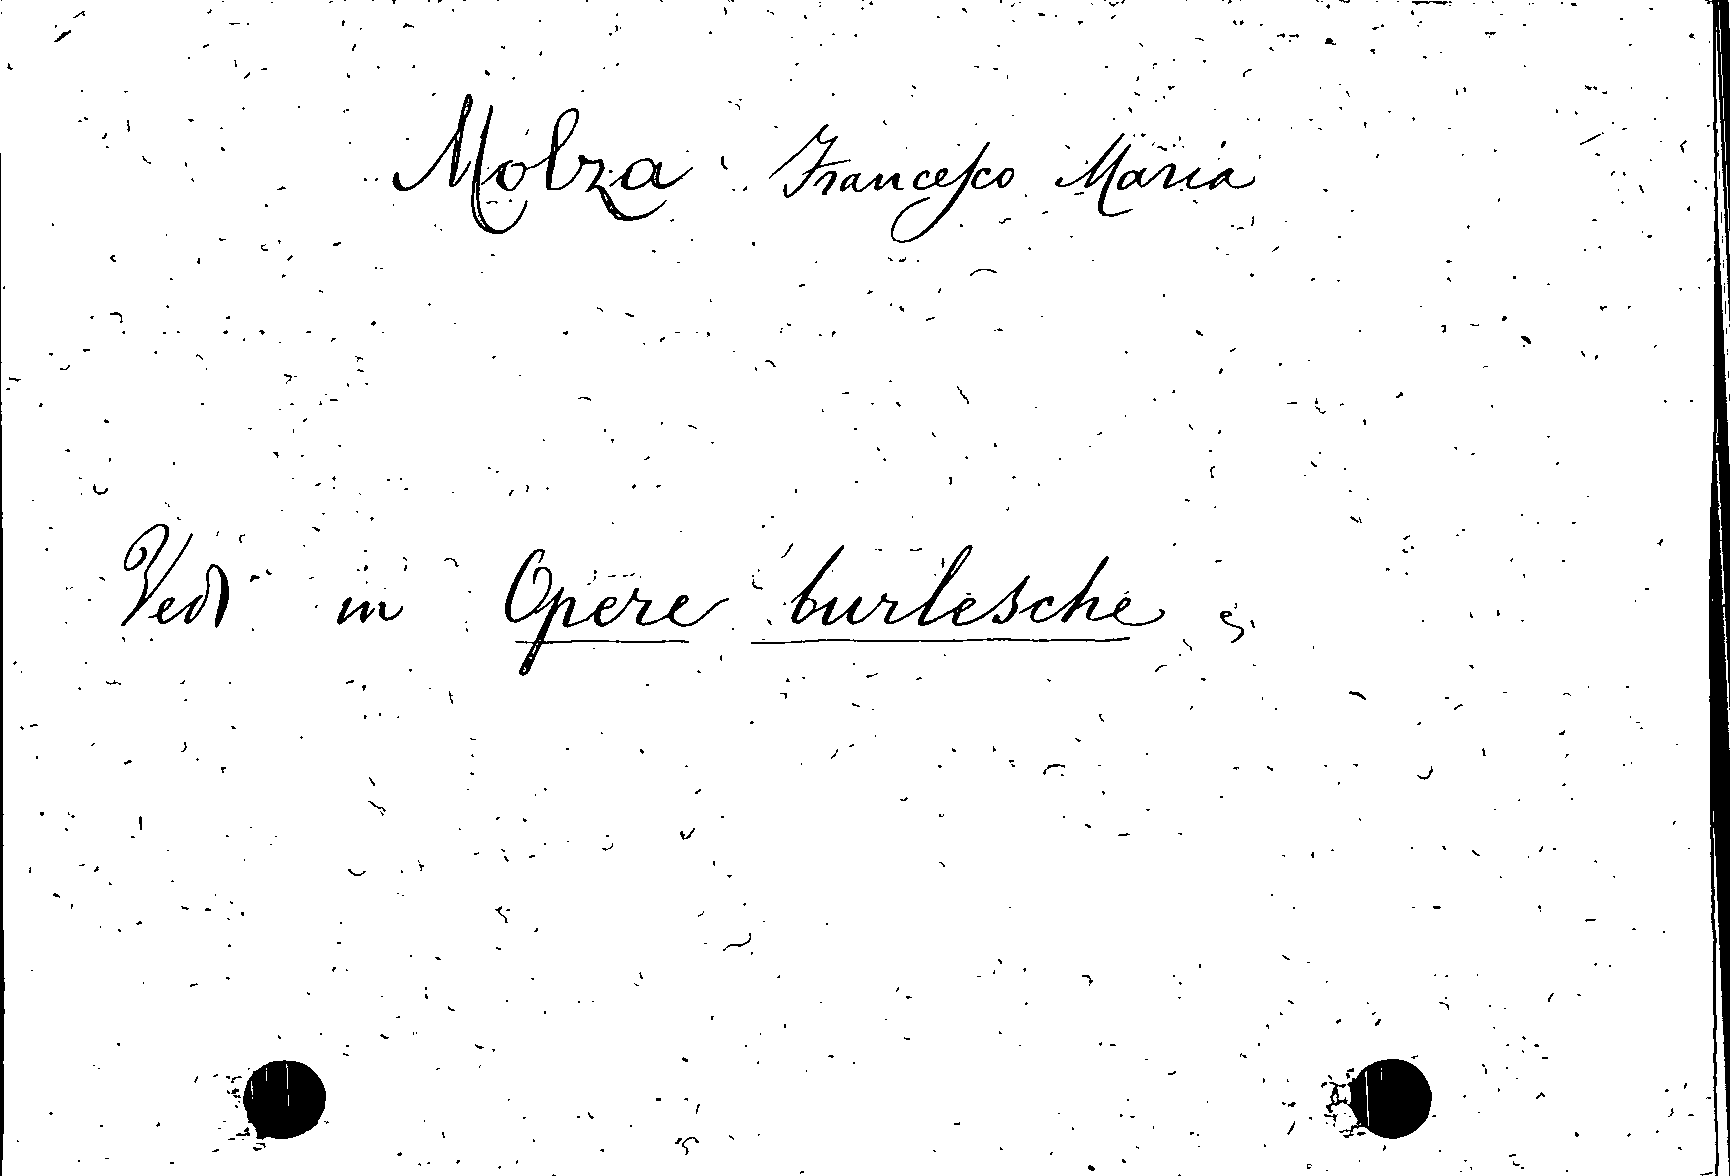 Molza Francesco Maria
Vedi in Opere burlesche